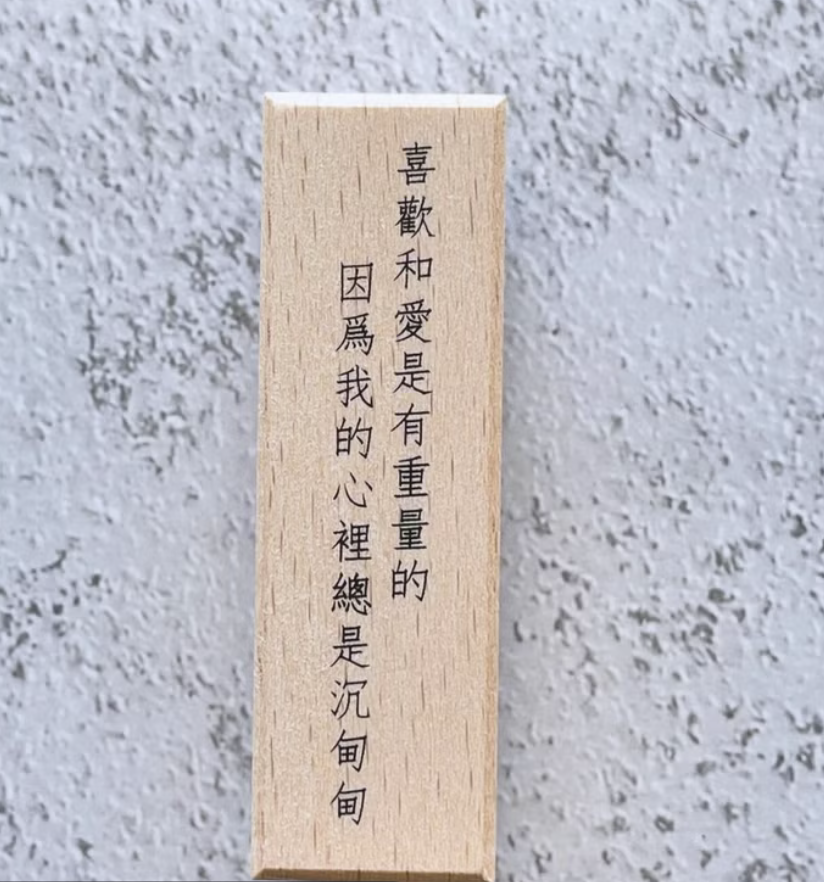 喜歡和愛是有重量的
因爲我的心裡總是沉甸甸